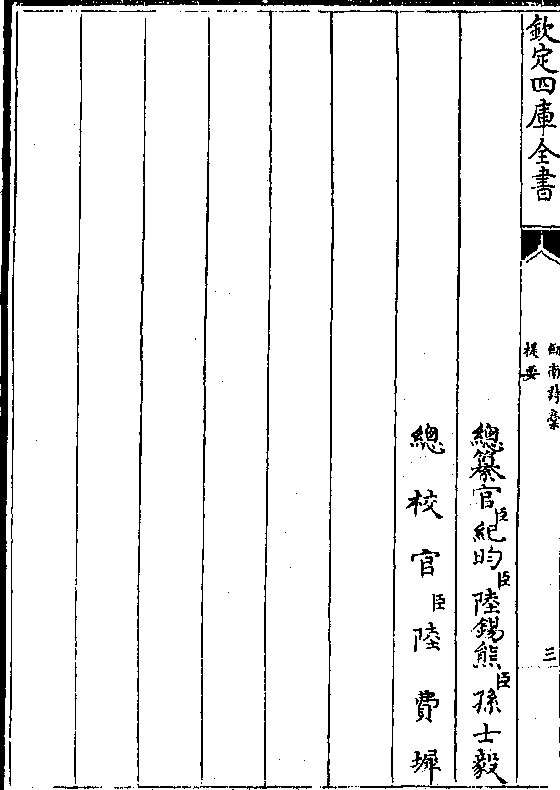 欽定四庫全書
劒南詩稾
提要
三
總纂官臣紀昀臣陸錫熊臣孫士毅
總校官臣陸費墀